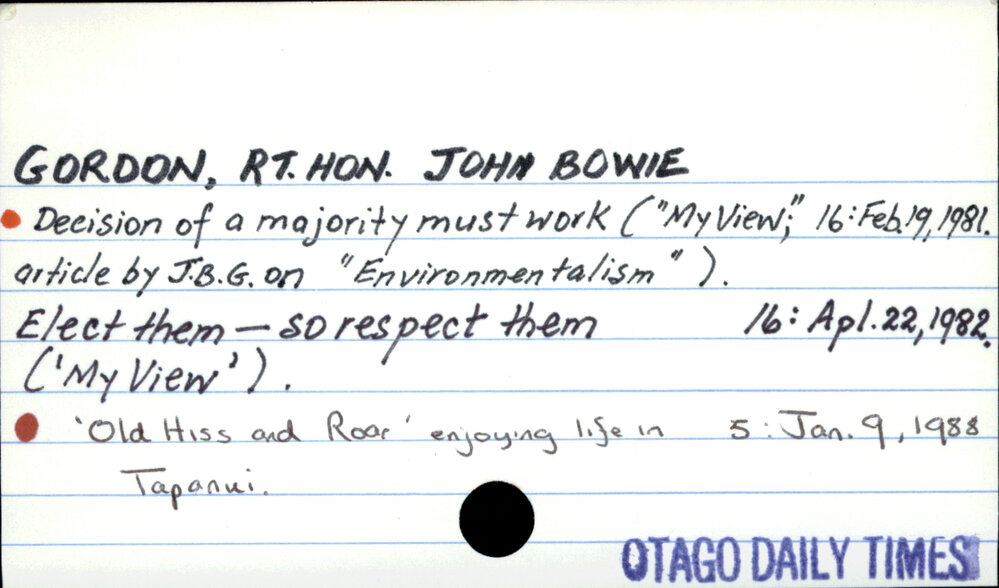 GORDON, RT. HON. JOHN BOWIE
Decision of a majority must work ("My View," 16: Feb. 19, 1981.
article by J.B.G. on "Environmentalism").
Elect them — so respect them 16: Apl. 22, 1982.
('My View').
'Old Hiss and Roar' enjoying life in 5: Jan. 9, 1988
Tapanui.
OTAGO DAILY TIMES